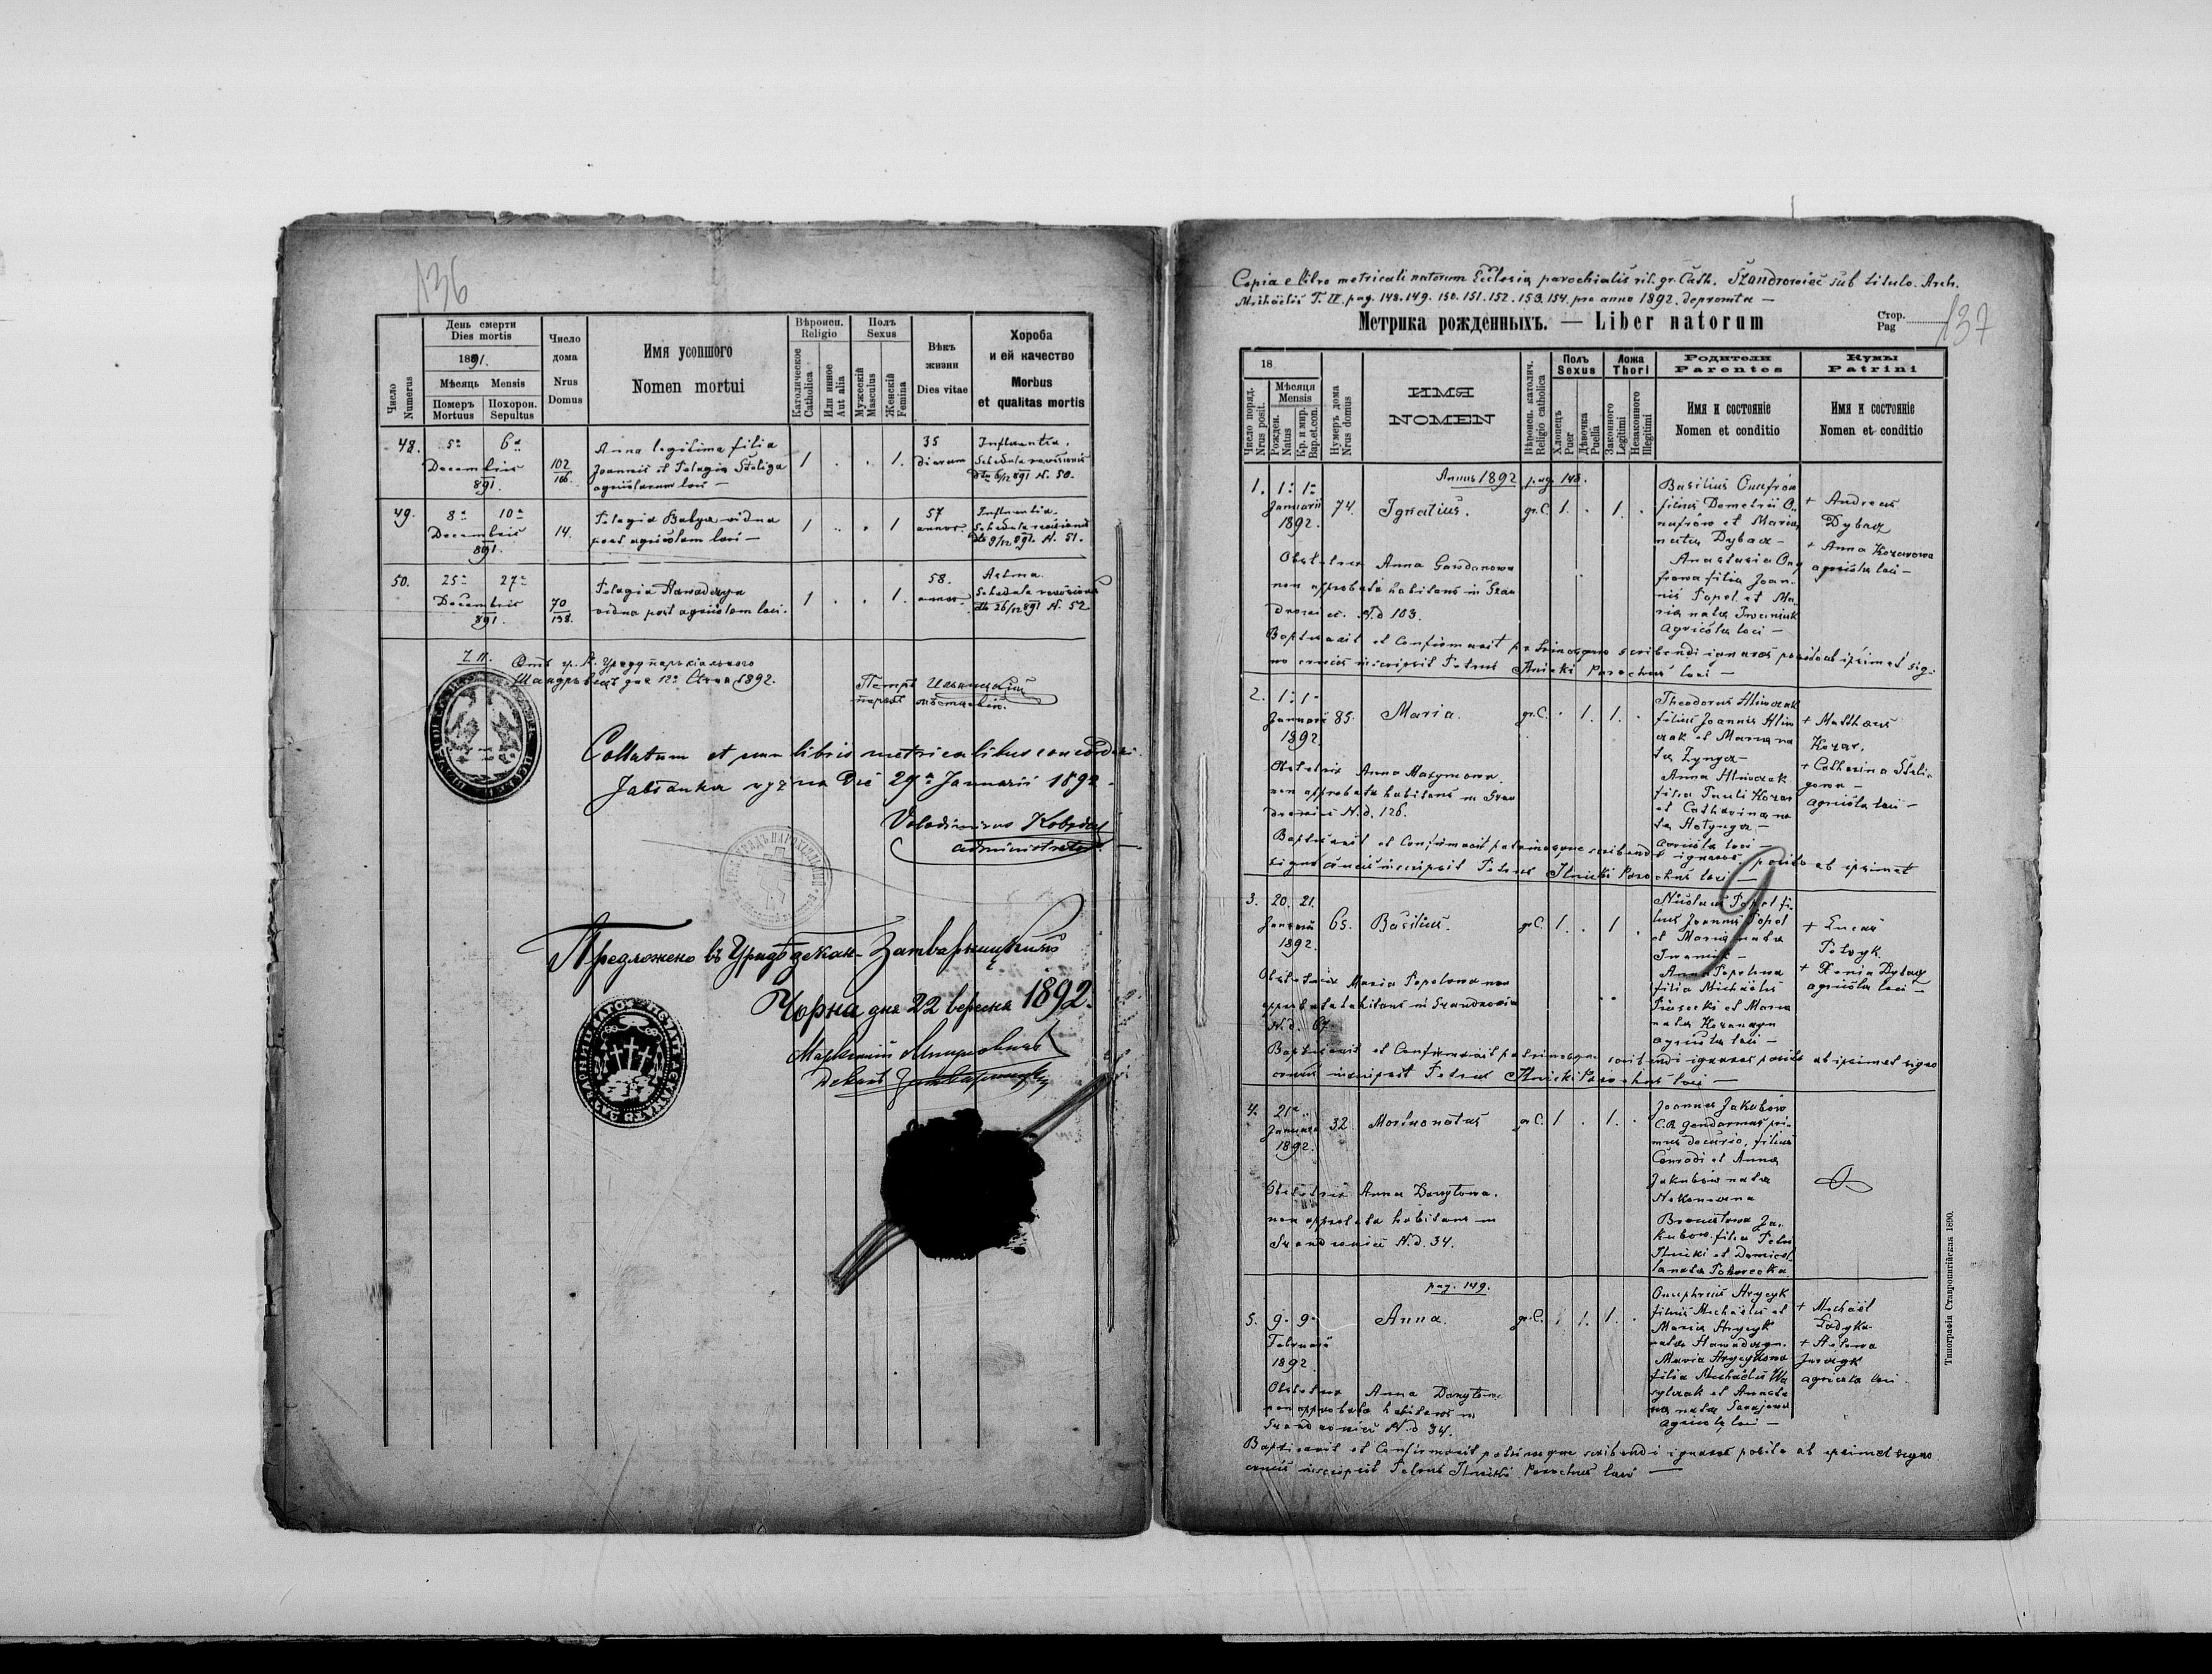 136
Число
Numerus
День смерти
Dies mortis
1891.
Мѣсяць Mensis
Померъ
Mortuus
Похорон.
Sepultus
Число
дома
Nrus
Domus
Имя усопшого
Nomen mortui
Вѣроисп.
Religio
Католическое
Catholica
Или инное
Aut alia
Полъ
Sexus
Мужескій
Masculus
Женскій
Femina
Вѣкъ
жизни
Dies vitae
Хороба
и ей качество
Morbus
et qualitas mortis
48. 5a 6a
Decembris
891.
102
166.
Anna legitima filia
Joannis et Pelagia Szeliga
agricolarum loci —
1 . . 1.
35
dierum
Influentia.
Schedula revisionis
dto 6/12 891 N. 50.
49. 8a 10a
Decembris
891.
14.
Pelagia Babyn vidua
post agricolam loci —
1 . . 1
57
annor.
Influentia.
Schedula revisionis
dto 9/12 891. N. 51.
50. 25a 27a
Decembris
891.
70
138.
Pelagia Hawadzyn
vidua post agricolam loci.
1 . . 1.
58.
annor.
Astma.
Schedula revisionis
dto 26/12 891 N. 52
Отъ гр. к. Уряду парохіального
Шандровецъ дня 12 Січня 1892.
Петръ Ильницкій
парохъ мѣстцевый.
Collatum et cum libris metricalibus concordat.
Jabłonka wyżna Die 29a Januarii 1892.
Volodimirus
administrator.
Предложено въ Урядѣ декан. Затварницкимъ
Чорна дня 22 вересня 1892.
Деканъ Затварницкій
Copia e libro metricali natorum Ecclesia parochialis rit. gr. Cath. Szandrowiec sub titulo Arch.
Michaelis T. IV. pag. 148. 149. 150. 151. 152. 153. 154. pro anno 1892. deprompta —
Метрика рожденныхъ. — Liber natorum
Стор.
Pag
137
Число поряд.
Nrus posit.
18
Мѣсяця
Mensis
Рожден.
Natus
Кр. и мир.
Bap.et.con.
Нумеръ дома
Nrus domus
ИМЯ
NOMEN
Вѣроисп. католич.
Religio catholica
Полъ
Sexus
Хлопецъ
Puer
Дѣвочка
Puella
Ложа
Thori
Законного
Legitimi
Незаконного
Illegitimi
Родители
Parentes
Имя и состояніе
Nomen et conditio
Кумы
Patrini
Имя и состояніе
Nomen et conditio
Annus 1892 pag. 148.
1. 1. 1.
Januarii
1892.
74. Ignatius. gr.C. 1. . 1. .
Basilius Onufrow
filius Demetrii O-
nufrów et Maria
nata Dybacz —
Anastasia Onu
frowa filia Joan-
nis Popel et Ma-
ria nata Iwaniuk
agricola loci —
+ Andreas
Dybacz
+ Anna Kozarowa
agricola loci —
Obstetrix Anna Gawdanowa
non approbata habitans in Szan
drowiec. N.d 103.
Baptisavit et Confirmavit patrinosque scribendi ignaros posito ab ipsimet sig-
no crucis inscripsit Petrus Ilnicki Parochus loci —
2. 1. 1.
Januarii
1892.
85. Maria. gr.C. . 1. 1. .
Theodorus Hliwczak
filius Joannis Hliw
czak et Maria na
ta Zynycz —
Anna Hliwczak
filia Pauli Kozar
et Catharina na
ta Hotynycz —
agricola loci —
+ Matthaeus
Kozar.
+ Catharina Szeli-
gowa —
agricola loci —
Obstetrix Anna Maxymowa.
non approbata habitans in Szan
drowiec N.d. 126.
Baptisavit et Confirmavit patrinosque scribendi ignaros posito ab ipsimet
signo crucis inscripsit Petrus Ilnicki Parochus loci —
3. 20. 21.
Januarii
1892.
65. Basilius. gr.C. 1. . 1 .
Nicolaus Popel fi-
lius Joannis Popel
et Maria nata
Iwaniuk —
Anna Popelowa
filia Michaelis
Piosecki et Maria
nata Kozanayn
agricola loci —
+ Lucas
Petryk
+ Xenia Dybacz
agricola loci —
Obstetrix Maria Popelowa non
approbata habitans in Szandrowiec
N.d. 67.
Baptisavit et Confirmavit patrinosque scribendi ignaros posito ab ipsimet signo
crucis inscripsit Petrus Ilnicki Parochus loci —
4. 21a
Januarii
1892.
32 Mortuonatus gr.C. 1 . 1. .
Joannes Jakubow
C.R. gendarmus pri-
mus decurio, filius
Conradi et Anna
Jakubow nata
Bronisława Ja-
kubow. filia Petri
Ilnicki et Domicel
la nata Pohorecka
Obstetrix Anna Danyłowa.
non approbata habitans in
Szandrowiec N.d. 34.
pag. 149.
5. 9. 9.
Februarii
1892.
Anna. gr.C. . 1. 1. .
Onuphrius Hrycyk
filius Michaelis et
Maria Hrycyk
nata Hawadzyn.
Maria Hrycykowa
filia Michaelis Wa
sylczak et Anasta
sia nata Sarajowa
agricola loci —
+ Michael
Ładyka
+ Helena
Juzayk
agricola loci
Obstetrix Anna Danyłowa
non approbata habitans in
Szandrowiec N.d 34.
Baptisavit et Confirmavit patrinosque scribendi ignaros posito ab ipsimet signo
crucis inscripsit Petrus Ilnicki Parochus loci —
Типографія Ставропигійская 1890.